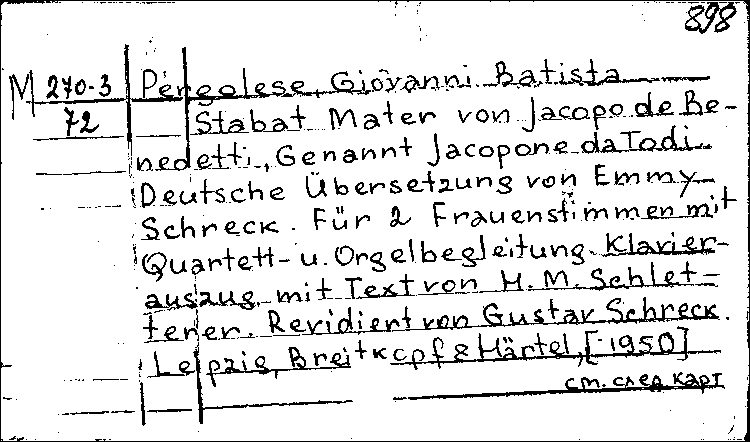 898
M 270-3 Pergolese, Giovanni Batista
72 Stabat Mater von Jacopo de Be-
nedetti, Genannt Jacopone da Todi.
Deutsche Übersetzung von Emmy
Schreck. Für 2 Frauenstimmen mit
Quartett- u. Orgelbegleitung. Klavier-
auszug mit Text von H. M. Schlet-
terer. Revidiert von Gustav Schreck.
Leipzig, Breitkopf & Härtel, [1950]
см. след карт